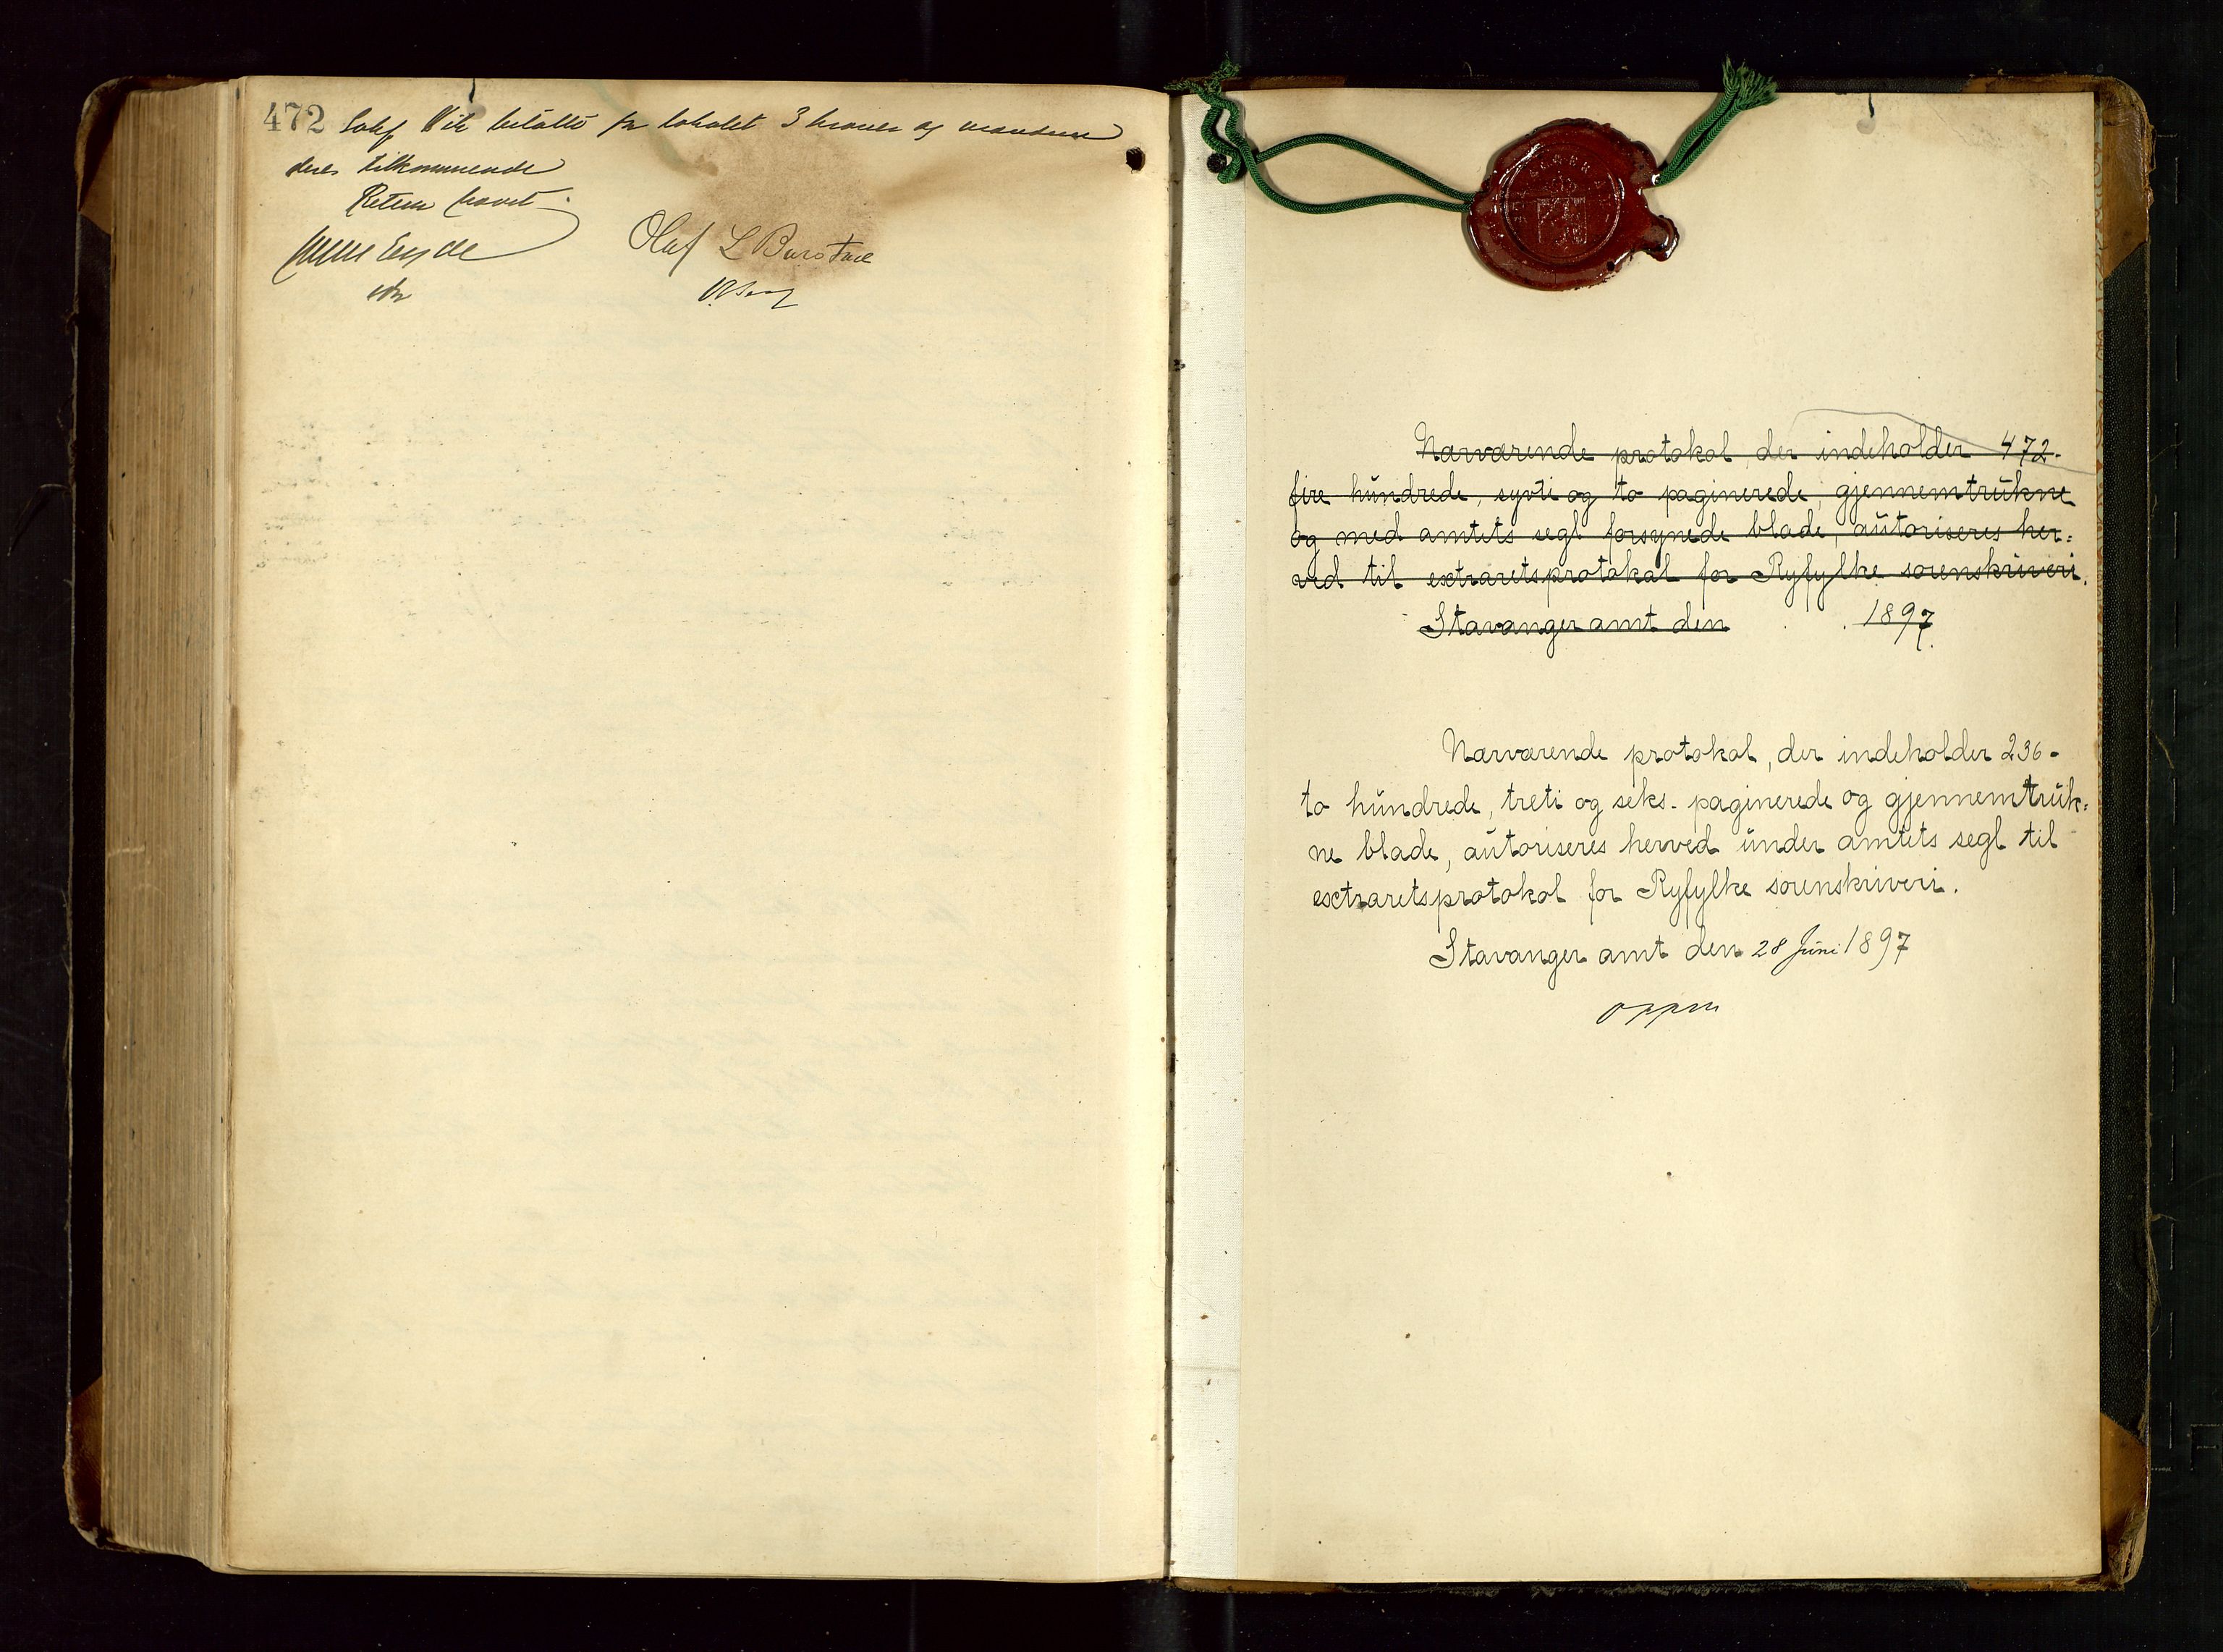 472
Vik betalte for lokalet 3 kroner og mændene
deres tilkommende
Retten hævet.
Olaf L
Nærværende protokol, der indeholder 472-
fire hundrede, sytti og to paginerede, gjennemtrukne
og med amtets segl forsynede blade, autoriseres her=
ved til extraretsprotokol for Ryfylke sorenskriveri.
Stavanger amt den 1897.
Nærværende protokol, der indeholder 236-
to hundrede, treti og seks- paginerede og gjennemtruk=
ne blade, autoriseres herved under amtets segl til
extraretsprotokol for Ryfylke sorenskriveri.
Stavanger amt den 28 Juni 1897
Oppen